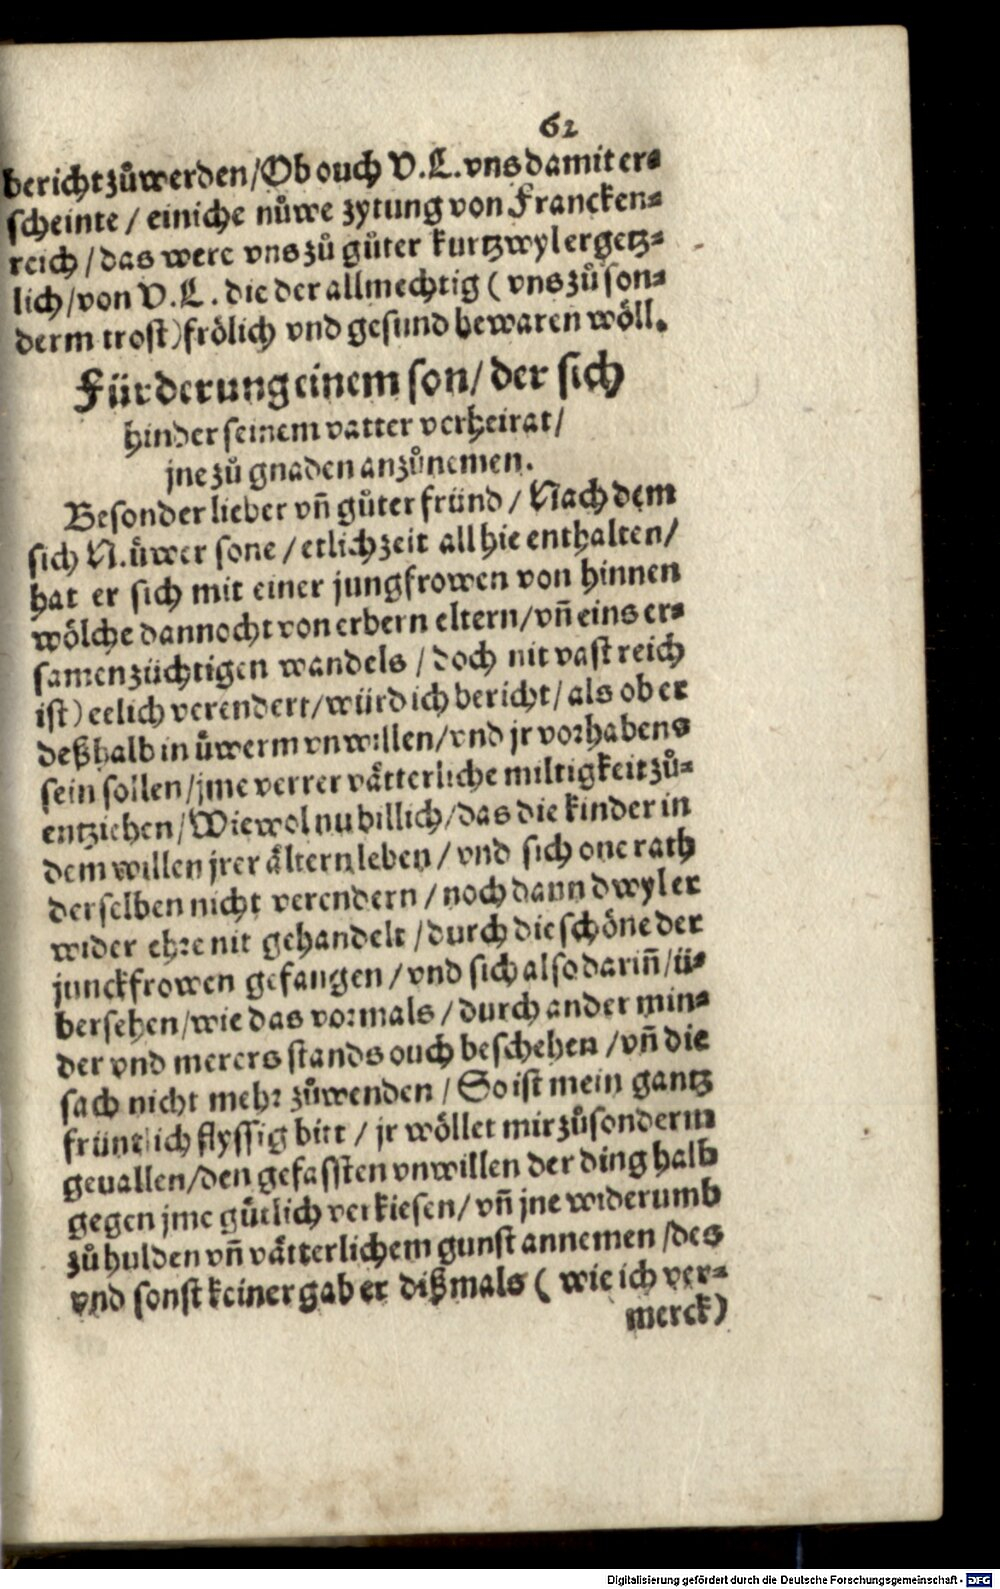 62
bericht zuͦwerden / Ob ouch V.L. vns damit er⸗
scheinte / einiche nüwe zytung von Francken⸗
reich / das were vns zuͦ guͦter kurtzwyl ergetz⸗
lich / von V.L. die der allmechtig ( vns zuͦ son⸗
derm trost ) frölich vnd gesund bewaren wöll.
Fürderung einem son / der sich
hinder seinem vatter verheirat /
jne zuͦ gnaden anzuͦnemen.
Besonder lieber vñ guͦter fründ / Nach dem
sich N. üwer sone / etlich zeit all hie enthalten /
hat er sich mit einer jungfrowen von hinnen
wölche dannocht von erbern eltern / vñ eins er⸗
samen züchtigen wandels / doch nit vast reich
ist ) eelich verendert / würd ich bericht / als ob er
deßhalb in üwerm vnwillen / vnd jr vorhabens
sein sollen / jme verrer vätterliche miltigkeit zuͦ⸗
entziehen / Wiewol nu billich / das die kinder in
dem willen jrer ältern leben / vnd sich one rath
derselben nicht verendern / noch dann dwyl er
wider ehre nit gehandelt / durch die schöne der
junckfrowen gefangen / vnd sich also dariñ / ü⸗
bersehen / wie das vormals / durch ander min⸗
der vnd merers stands ouch beschehen / vñ die
sach nicht mehr zuͦwenden / So ist mein gantz
früntlich flyssig bitt / jr wöllet mir zuͦ sonderm
geuallen / den gefassten vnwillen der ding halb
gegen jme guͤtlich verkiesen / vñ jne widerumb
zuͦ hulden vñ vätterlichem gunst annemen / des
vnd sonst keiner gab er dißmals ( wie ich ver⸗
merck )
Digitalisierung gefördert durch die Deutsche Forschungsgemeinschaft - DFG